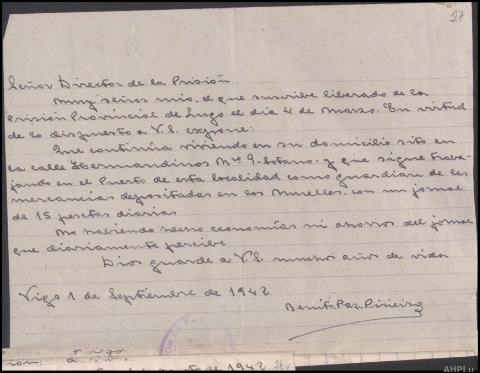 27
Señor Director de la Prisión
Muy señor mio. el que suscribe liberado de la
Prisión Provincial de Lugo el dia 4 de Marzo. En virtud
de lo dispuesto a V.S. expone:
Que continúa viviendo en su domicilio sito en
la calle Hermandinos Nº 9- y que sigue traba-
jando en el Puerto de esta localidad como guardian de las
mercancias depositadas en los Muelles. con un jornal
de 15 pesetas diarias
No habiendo hecho economías ni ahorros del jornal
que diariamente percibe
Dios guarde a V.S. muchos años de vida
Vigo 1 de Septiembre de 1942
Benito Paz. Piñeiro
de 1942 26v
AHPLu